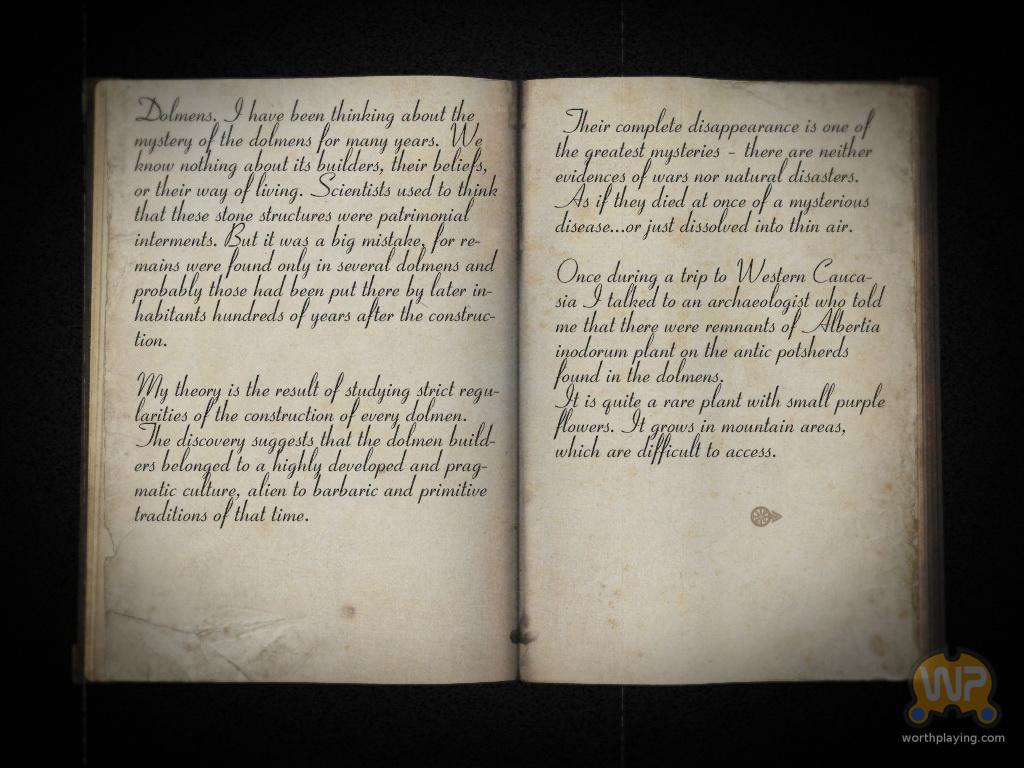 Dolmens. I have been thinking about the
mystery of the dolmens for many years. We
know nothing about its builders, their beliefs,
or their way of living. Scientists used to think
that these stone structures were patrimonial
interments. But it was a big mistake, for re-
mains were found only in several dolmens and
probably those had been put there by later in-
habitants hundreds of years after the construc-
tion.
My theory is the result of studying strict regu-
larities of the construction of every dolmen.
The discovery suggests that the dolmen build-
ers belonged to a highly developed and prag-
matic culture, alien to barbaric and primitive
traditions of that time.
Their complete disappearance is one of
the greatest mysteries - there are neither
evidences of wars nor natural disasters.
As if they died at once of a mysterious
disease...or just dissolved into thin air.
Once during a trip to Western Cauca-
sia I talked to an archaeologist who told
me that there were remnants of Albertia
inodorum plant on the antic potsherds
found in the dolmens.
It is quite a rare plant with small purple
flowers. It grows in mountain areas,
which are difficult to access.
WP
worthplaying.com